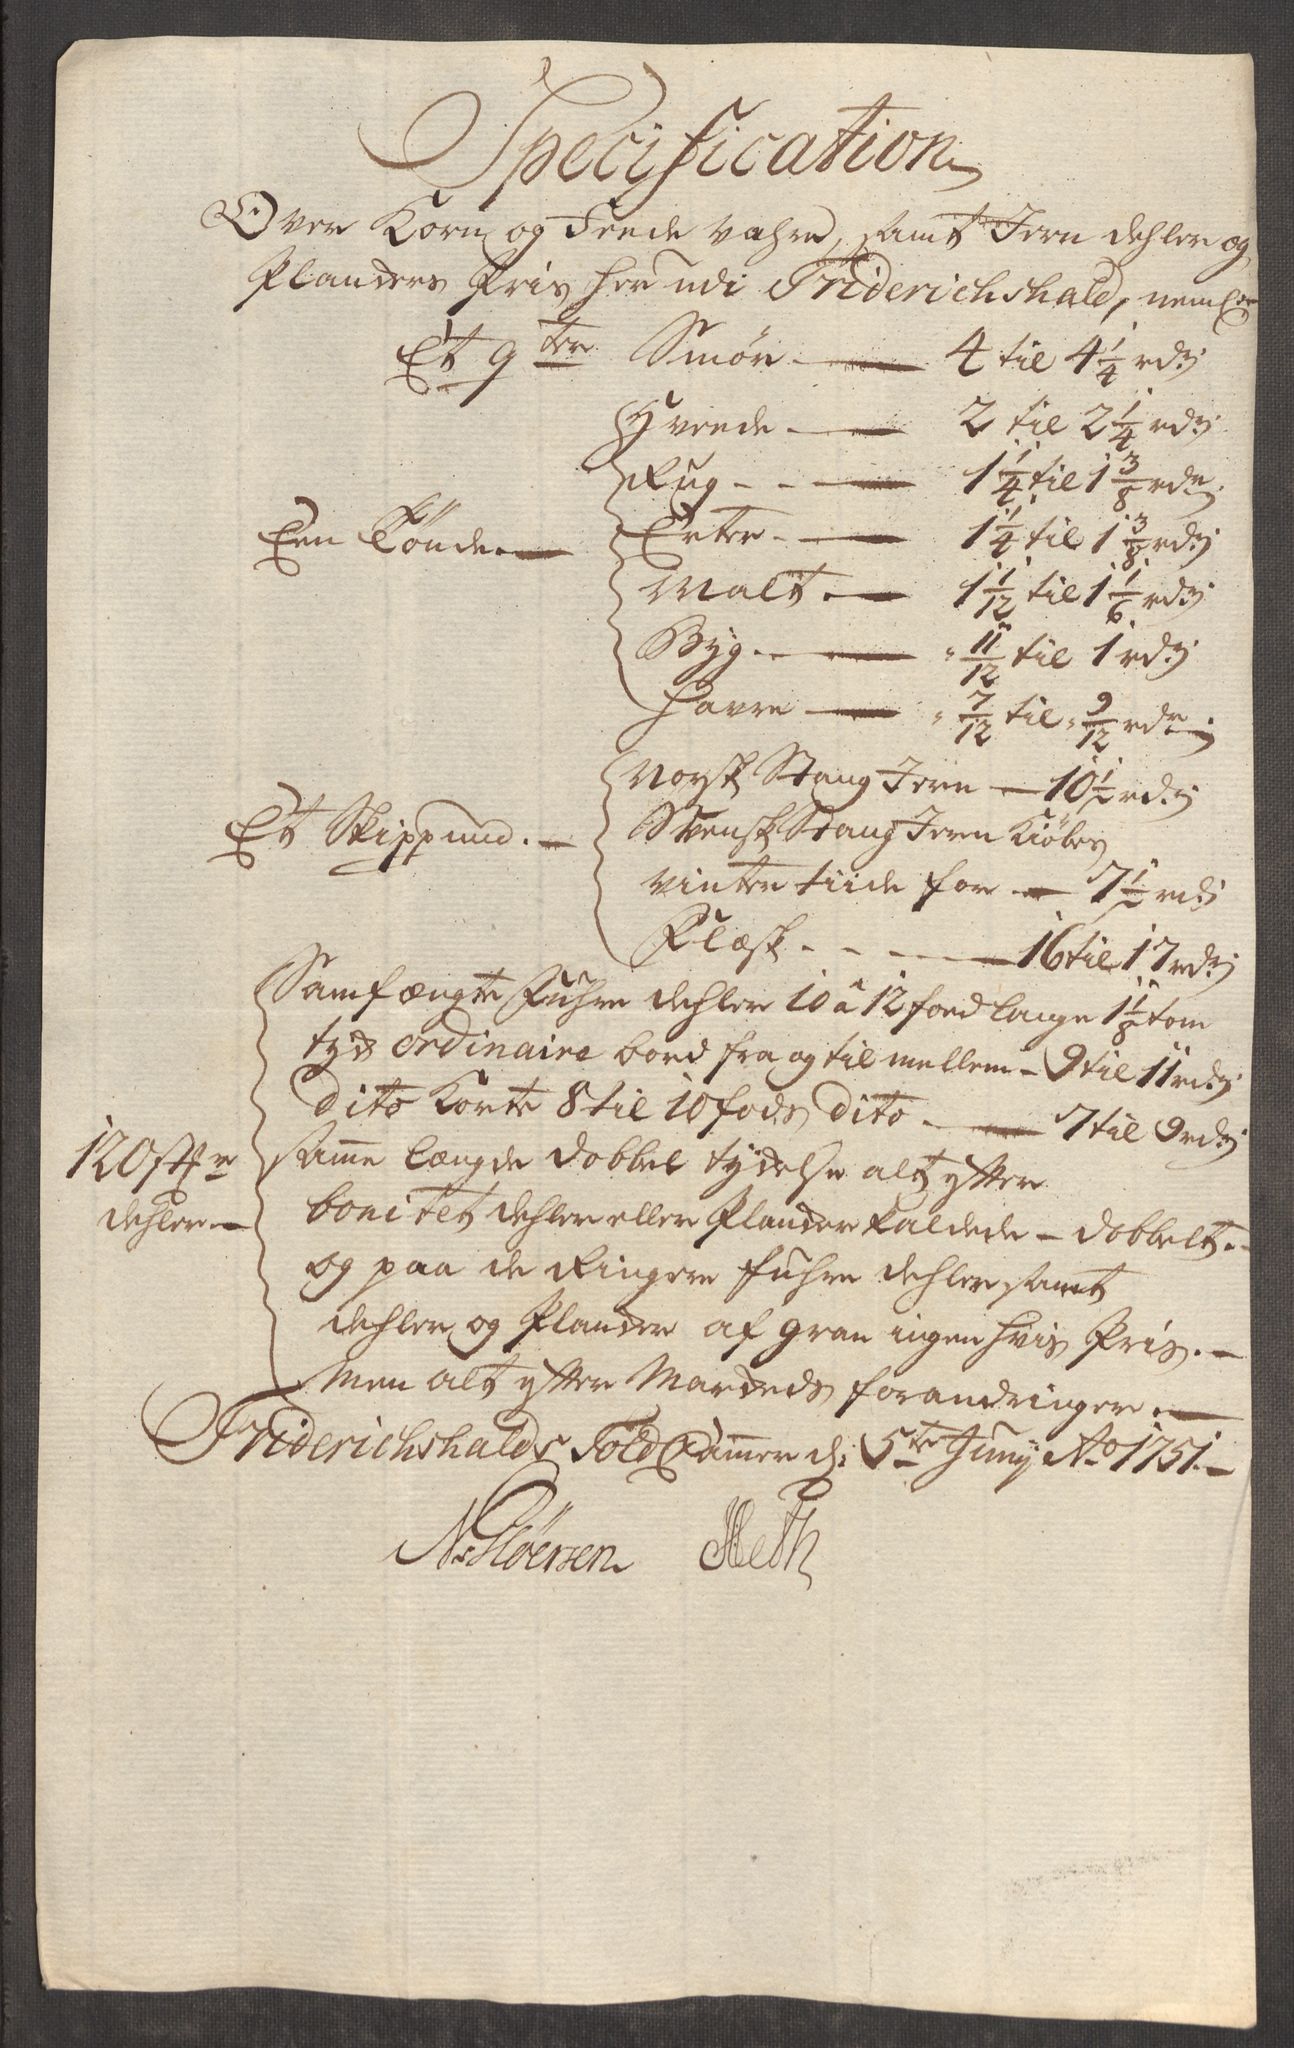 Specification
Over Korn og Feede vahre, samt Jern dehler og
Planckers Priis her udi Friderichshald, neml:
Et 9 ter Smör — 4 til 4 1/4 rdr:
Hvede — 2 til 2 1/4 rdr:
Rug — 1 1/4 til 1 3/8 rdr:
Een Tönde — Erter — 1 1/4 til 1 3/8 rdr:
Malt — 1 1/12 til 1 1/6 rdr:
Byg — " 11/12 til 1 rdr:
Havre — " 7/12 til " 9/12 rdr:
Norsk Stang Jern — 10 1/2 rdr:
Et Skippund. — Svensk Stang Jern Kiöbes
vinter tiide for — 7 1/2 rdr:
Flæsk — 16 til 17 rdr:
Samfængte Fuhre dehler 10 a 12 foed lange 1 1/8 tom
tyk ordinaire bord fra og til mellem — 9 til 11 rdr:
dito Korte 8 til 10 fods dito — 7 til 9 rdr:
120 st:r samme længde dobbel tyckelse alt efter
dehler — bonitet dehler eller Plancker kaldede — dobbelt. —
og paa de Ringere fuhre dehler samt
dehler og Plancker af gran ingen hvis Priis. —
Men alt efter Marckeds forandringer. —
Friderichshalds Told Cammer d: 5te Juny Ao 1751. —